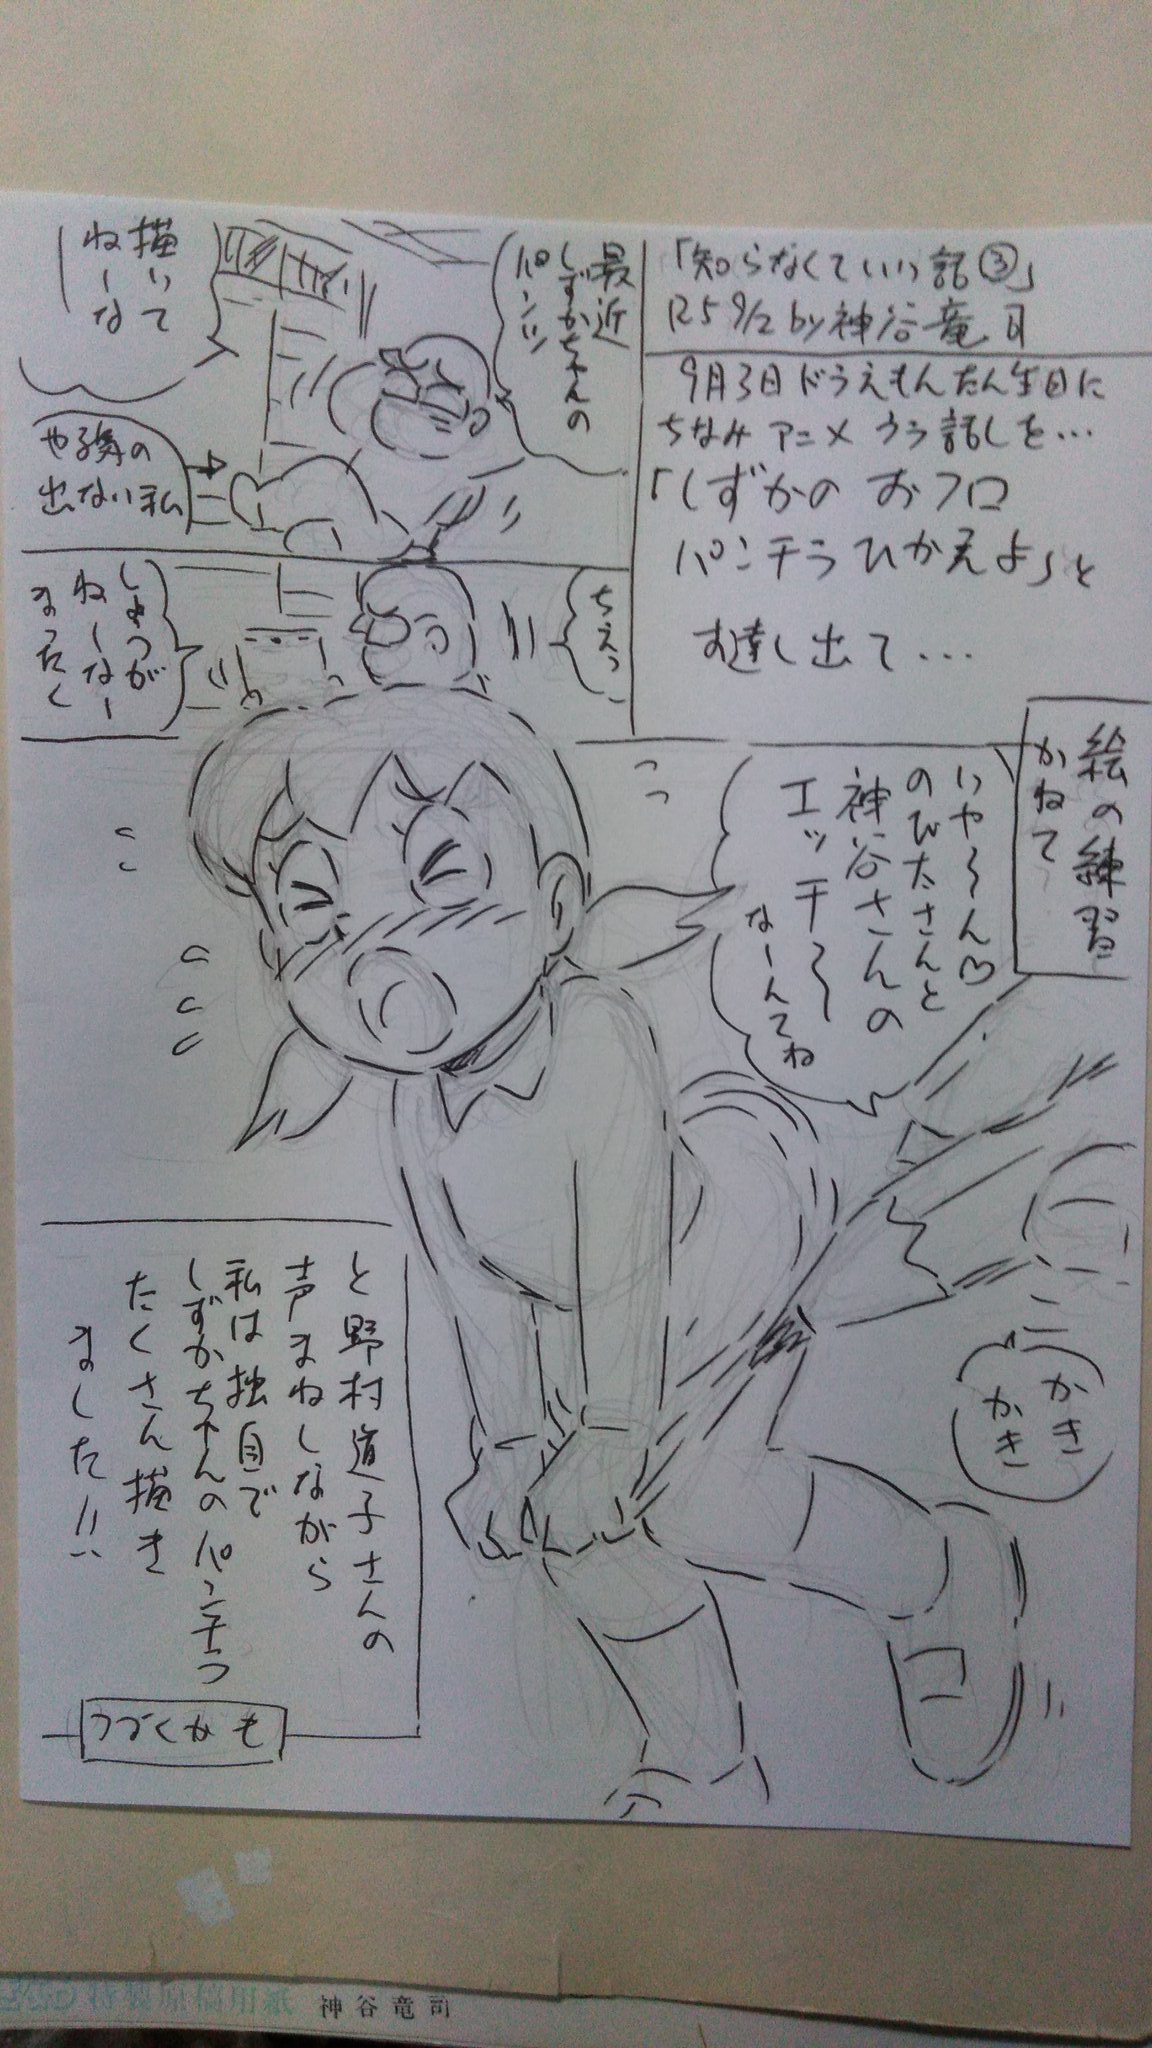 「知らなくていい話③」
R5 9/2 by 神谷竜司
9月3日ドラえもんたん生日に
ちなみアニメウラ話しを…
「しずかのおフロ
パンチラひかえよ」と
お達し出て…
最近
しずかちゃんの
パンツ
描いて
ねーな
や る気の
出ない私
ちえっ
しょうが
ねーなー
まったく
絵の練習
かねて
いや〜ん♡
のびたさんと
神谷さんの
エッチ〜
なーんてね
かき
かき
と野村道子さんの
声まねしながら
私は拙目で
しずかちゃんのパンチラ
たくさん描き
ました!!
つづくかも
特製原稿用紙 神谷竜司